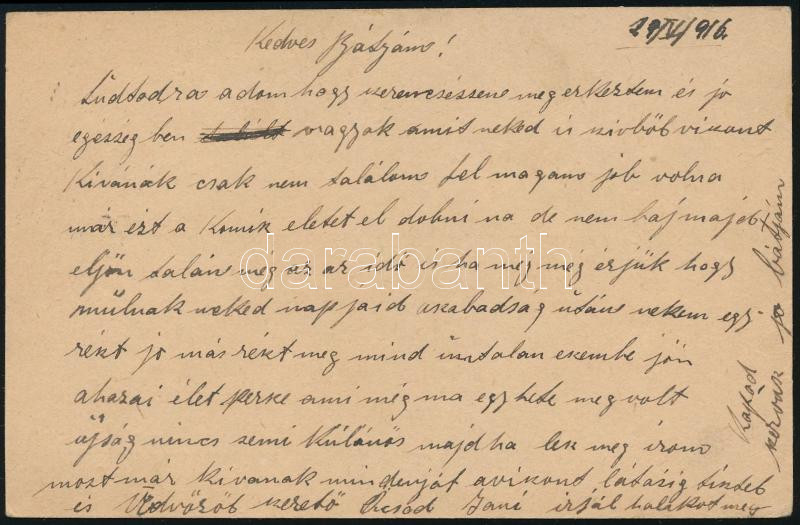 29/IV/916.
Kedves Bátyám!
Tudtodra adom hogy szerencséssene meg erkeztem és jo
egésség ben vagyok amit neked is szivböb viszont
Kivánák csak nem találom fel magam job volna
már ezt a Komik eletet el dobni na de nem báj majd
eljön talán még az az idő is ha még még érjük hogy
mulnak neked napjaid szabadsag útán nekem egy
részt jo más részt meg mind úntalan eszembe jön
ahazai élet perke ami még ma egy hete meg volt
újság nincs semi Külonös majd ha lesz meg irom
most már kivanak mindenját aviszont látásig tisztel
és Üdvözöb szerető Öcsöd Jani irjál halakot meg
szervák jo bátyám
darabanth